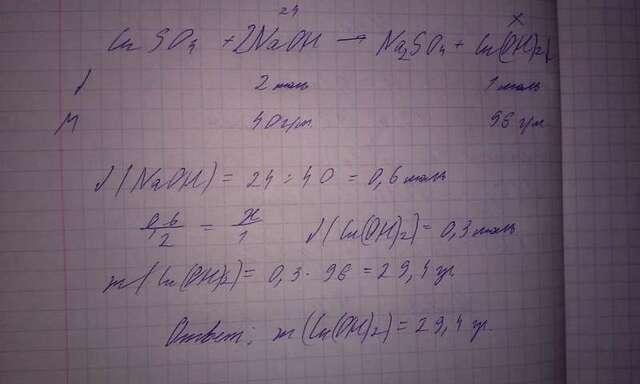 24 x
CuSO4 + 2NaOH → Na2SO4 + Cu(OH)2↓
ν 2 моль 1 моль
M 40 г/м 98 г/м
ν(NaOH) = 24 : 40 = 0,6 моль
0,6/2 = x/1 ν(Cu(OH)2) = 0,3 моль
m(Cu(OH)2) = 0,3 · 98 = 29,4 гр.
Ответ: m(Cu(OH)2) = 29,4 гр.